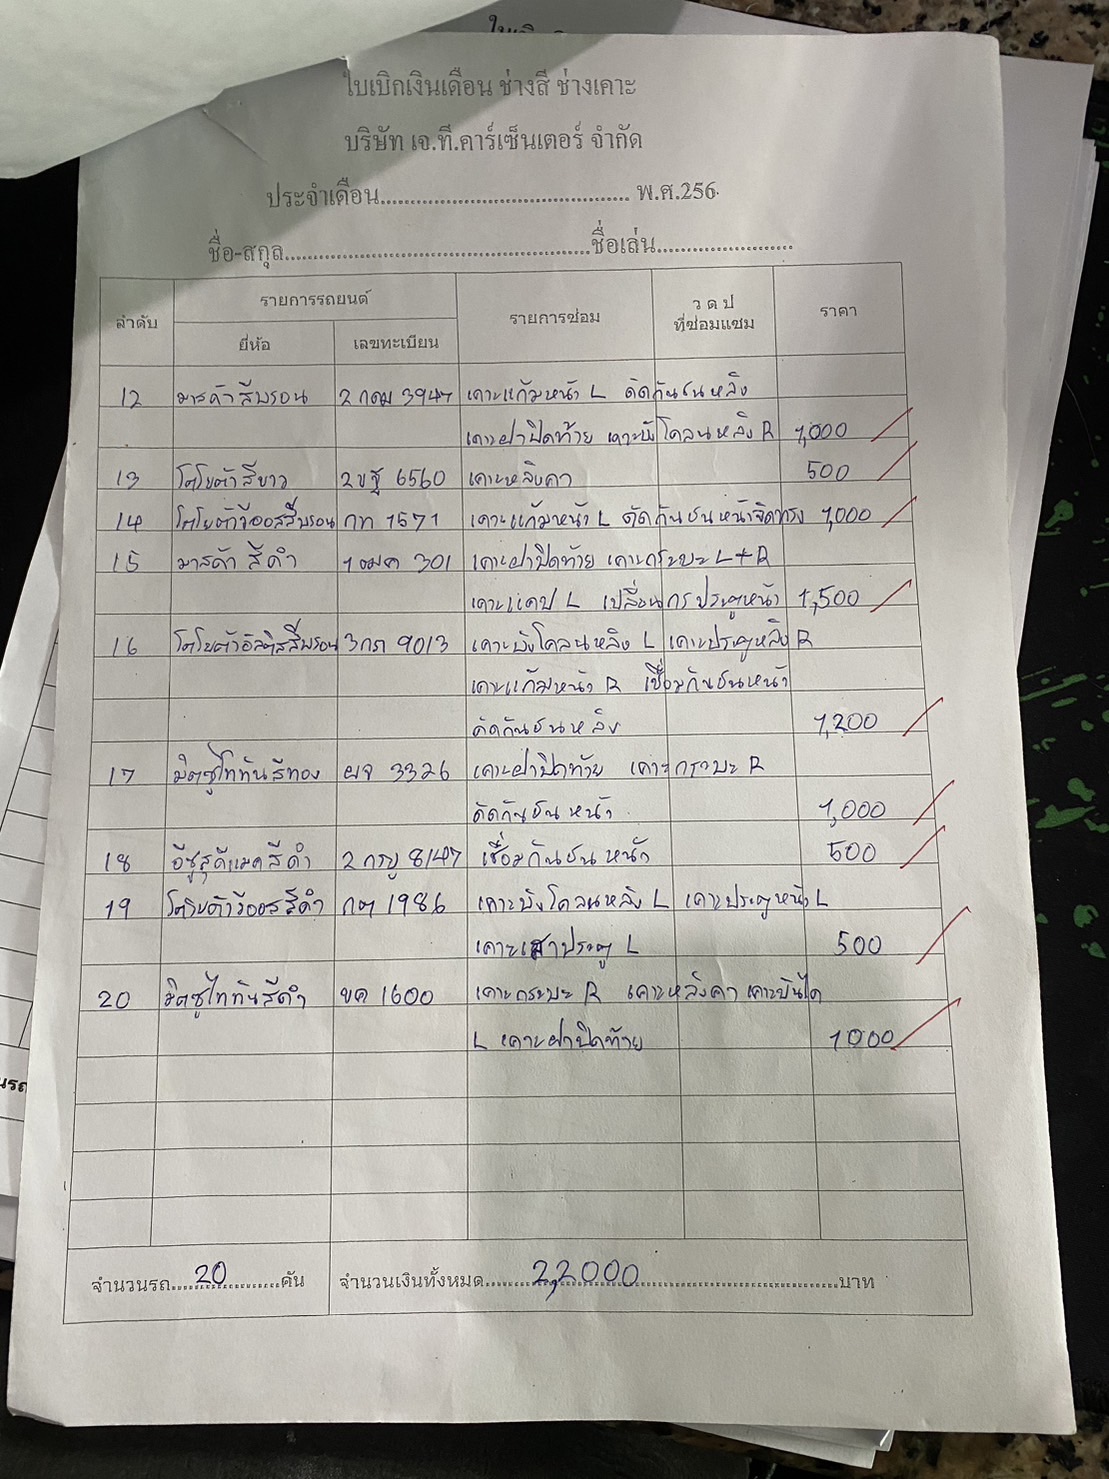 ใบเบิกเงินเดือน ช่างสี ช่างเคาะ
บริษัท เจ.ที.คาร์เซ็นเตอร์ จำกัด
ประจำเดือน.......................................... พ.ศ.256
ชื่อ-สกุล....................................................ชื่อเล่น.......................
ลำดับ รายการรถยนต์ รายการซ่อม ว ด ป ที่ซ่อมแซม ราคา
ยี่ห้อ เลขทะเบียน
12 มาสด้าสีบรอน 2 กฒ 3947 เคาะแก้มหน้า L ดัดกันชนหลัง
เคาะฝาปิดท้าย เคาะบังโคลนหลัง R 1,000
13 โตโยต้าสีขาว 2ขฐ 6560 เคาะหลังคา 500
14 โตโยต้าวีออสสีบรอน กท 1571 เคาะแก้มหน้า L ดัดกันชนหน้าจัดทรง 1,000
15 มาสด้า สีดำ 1 ฒค 301 เคาะฝาปิดท้าย เคาะกระบะ L+R
เคาะแคป L เปลี่ยน ประตูหน้า 1,500
16 โตโยต้าอัลติสสีบรอน 3กภ 9013 เคาะบังโคลนหลัง L เคาะประตูหลัง R
เคาะแก้มหน้า R เชื่อมกันชนหน้า
ดัดกันชนหลัง 1,200
17 มิตซูไททันสีทอง ผจ 3326 เคาะฝาปิดท้าย เคาะกระบะ R
ดัดกันชนหน้า 1,000
18 อีซูสุดีแมคสีดำ 2 กญ 8147 เชื่อมกันชนหน้า 500
19 โตโยต้าวีออสสีดำ กต 1986 เคาะบังโคลนหลัง L เคาะประตูหน้า L
เคาะเสาประตู L 500
20 มิตซูไททันสีดำ ขค 1600 เคาะกระบะ R เคาะหลังคา เคาะบันได
L เคาะฝาปิดท้าย 1000
จำนวนรถ....20..........คัน จำนวนเงินทั้งหมด........22,000..................................บาท